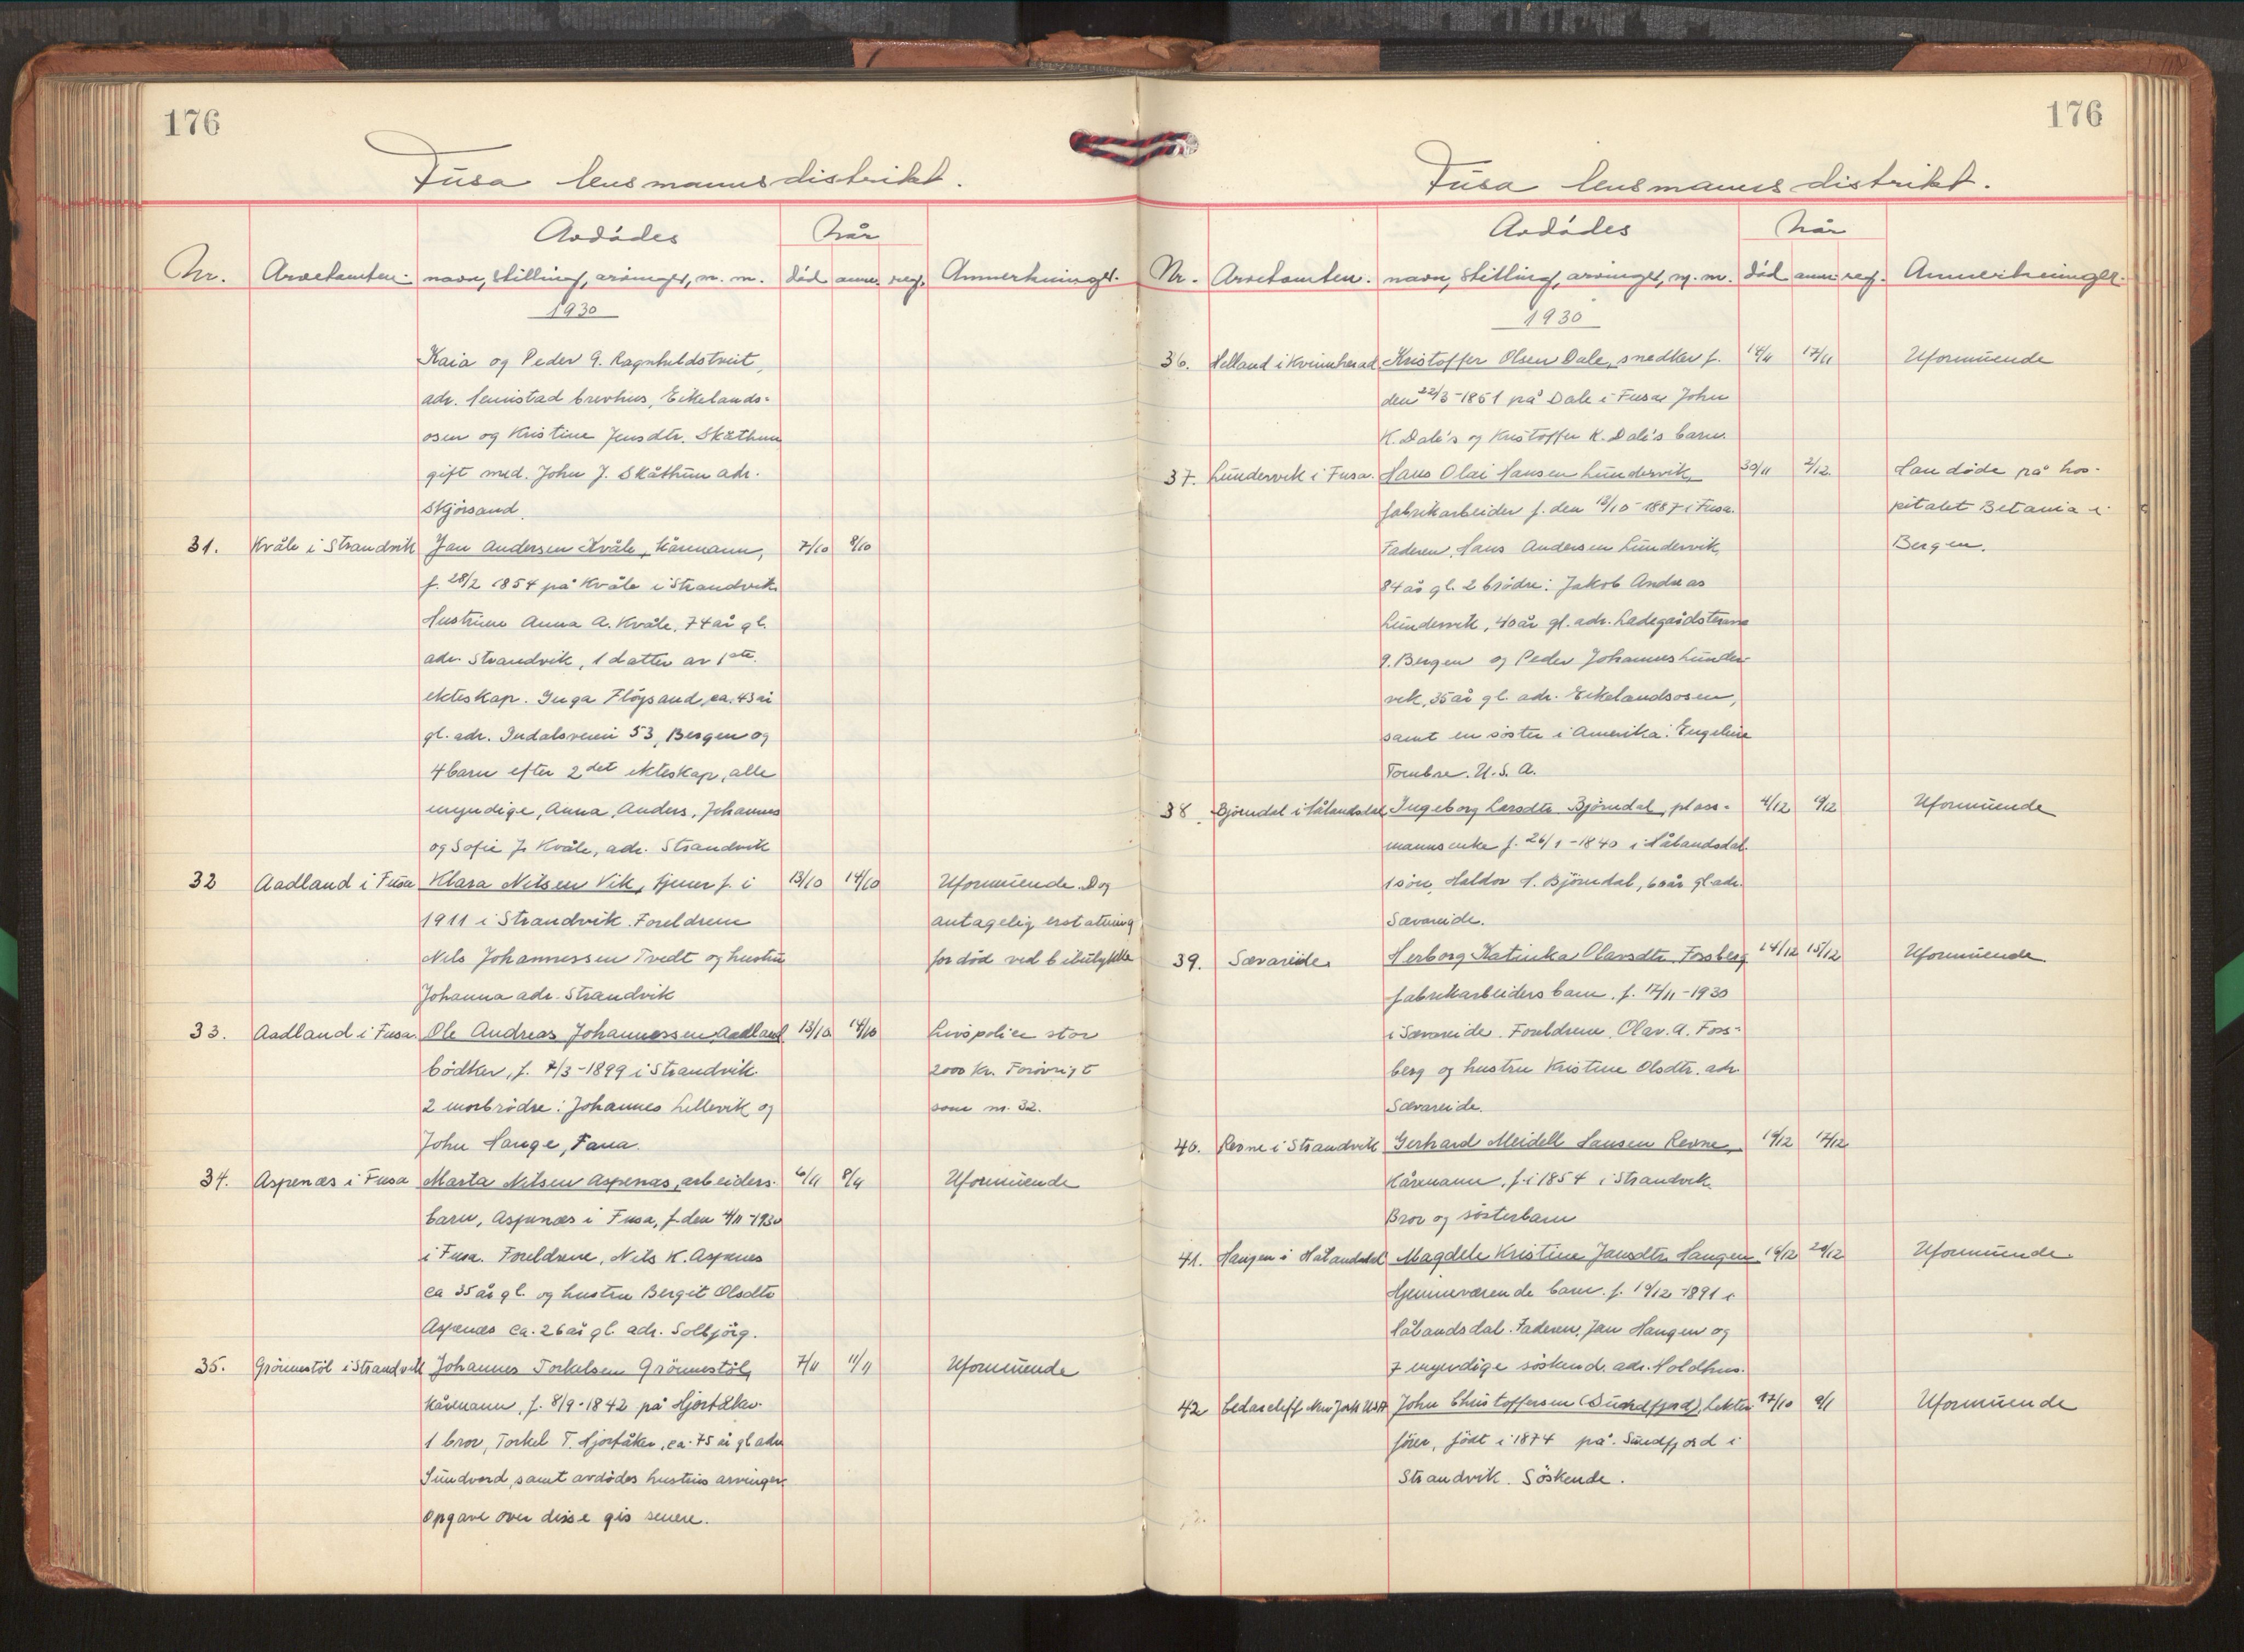 176
Fusa lensmannsdistrikt.
Avdødes
Når
Nr. Arvetomten. navn, stilling, arvinger, m. m. død anm. reg. Anmerkninger.
1930
Kaia og Peder G. Ragnhildstveit,
adr. Lennistad brevhus, Eikelands-
osen og Kristine Jensdtr. Skåthun
gift med. John J. Skåthun adr.
Skjørsand.
31. Kvåle i Strandvik Jan Andersen Kvåle, kårmann, 7/10 8/10
f. 28/2 1854 på Kvåle i Strandvik.
Hustruen Anna A. Kvåle, 74 år gl.
adr. Strandvik, 1 datter av 1ste
ekteskap. Inga Fløysand, ca. 43 år
gl. adr. Indalsveien 53, Bergen og
4 barn efter 2det ekteskap, alle
myndige, Anna, Anders, Johannes
og Sofie J. Kvåle, adr. Strandvik
32 Aadland i Fusa Klara Nilsen Vik, tjener f. i 13/10 14/10 Uformuende. Dog
1911 i Strandvik. Foreldrene antagelig erstatning
Nils Johannessen Tvedt og hustru for død ved bilulykke
Johanna adr. Strandvik
33. Aadland i Fusa. Ole Andreas Johannessen Aadland 13/10 14/10 Livspolice stor
bødker, f. 7/3-1899 i Strandvik. 2000 kr. Forøvrigt
2 morbrødre: Johannes Lellevik og som nr. 32.
John Hauge, Fana.
34. Aspenæs i Fusa Marta Nilsen Aspenæs, arbeiders- 6/11 8/11 Uformuende
barn, Aspenæs i Fusa, f. den 4/11-1930
i Fusa. Foreldrene, Nils K. Aspenes
ca 35 år gl. og hustru Bergit Olsdtr
Aspenæs ca. 26 år gl. adr. Solbjörg.
35. Grönnestöl i Strandvik Johannes Torkelsen Grönnestöl, 7/11 11/11 Uformuende
kårmann, f. 8/9-1842 på Hjortåker.
1 bror, Torkel T. Hjortåker, ca. 75 år gl adr
Sundvord, samt avdødes hustrus arvinger.
Opgave over disse gis senere.
176
Fusa lensmanns distrikt.
Avdødes
Når
Nr. Arvetomten. navn, stilling, arvinger, m. m. død anm. reg. Anmerkninger.
1930
36. Helland i Kvinnherad Kristoffer Olsen Dale, snedker f. 14/11 17/11 Uformuende
den 22/3-1851 på Dale i Fusa John
K. Dale's og Kristoffer K. Dale's barn.
37. Lundervik i Fusa. Hans Olai Hansen Lundervik, 30/11 2/12 Han døde på hos-
fabrikarbeider f. den 13/10-1887 i Fusa. pitalet Betania i
Faderen, Hans Andersen Lundervik, Bergen.
84 år gl. 2 brødre: Jakob Andreas
Lundervik, 40 år gl. adr. Ladegårdsterrasse
9. Bergen og Peder Johannes Lunder-
vik, 35 år gl. adr. Eikelandsosen,
samt en søster i Amerika: Engeline
Tombre. U.S.A.
38. Björndal i Hålandsdal Ingeborg Larsdtr Björndal, plass- 4/12 9/12 Uformuende
manns enke f. 26/1-1840 i Hålandsdal.
1 sön, Haldor H. Björndal, 60 år gl. adr.
Sævareide.
39. Sævareide. Herborg Katinka Olavsdtr. Forsberg 14/12 15/12 Uformuende
fabrikarbeiders barn. f. 17/11-1930
i Sævareide. Foreldrene, Olav. A. Fors-
berg og hustru Kristine Olsdtr. adr
Sævareide.
40. Revne i Strandvik Gerhard Meidell Hansen Revne, 14/12 17/12
Kårmann, f. i 1854 i Strandvik
Bror og søsterbarn
41. Haugen i Hålandsdal Magdele Kristine Jansdtr. Haugen 16/12 20/12 Uformuende.
hjemmeværende barn. f. 19/12-1891 i
Hålandsdal. Faderen, Jan Haugen og
7 myndige søskend. adr. Holdhus.
42 Cedarcliff New York USA John Christoffersen (Sundfjord), lekter 17/10 9/1 Uformuende
fører, født i 1874 på Sundfjord i
Strandvik. Søskende.